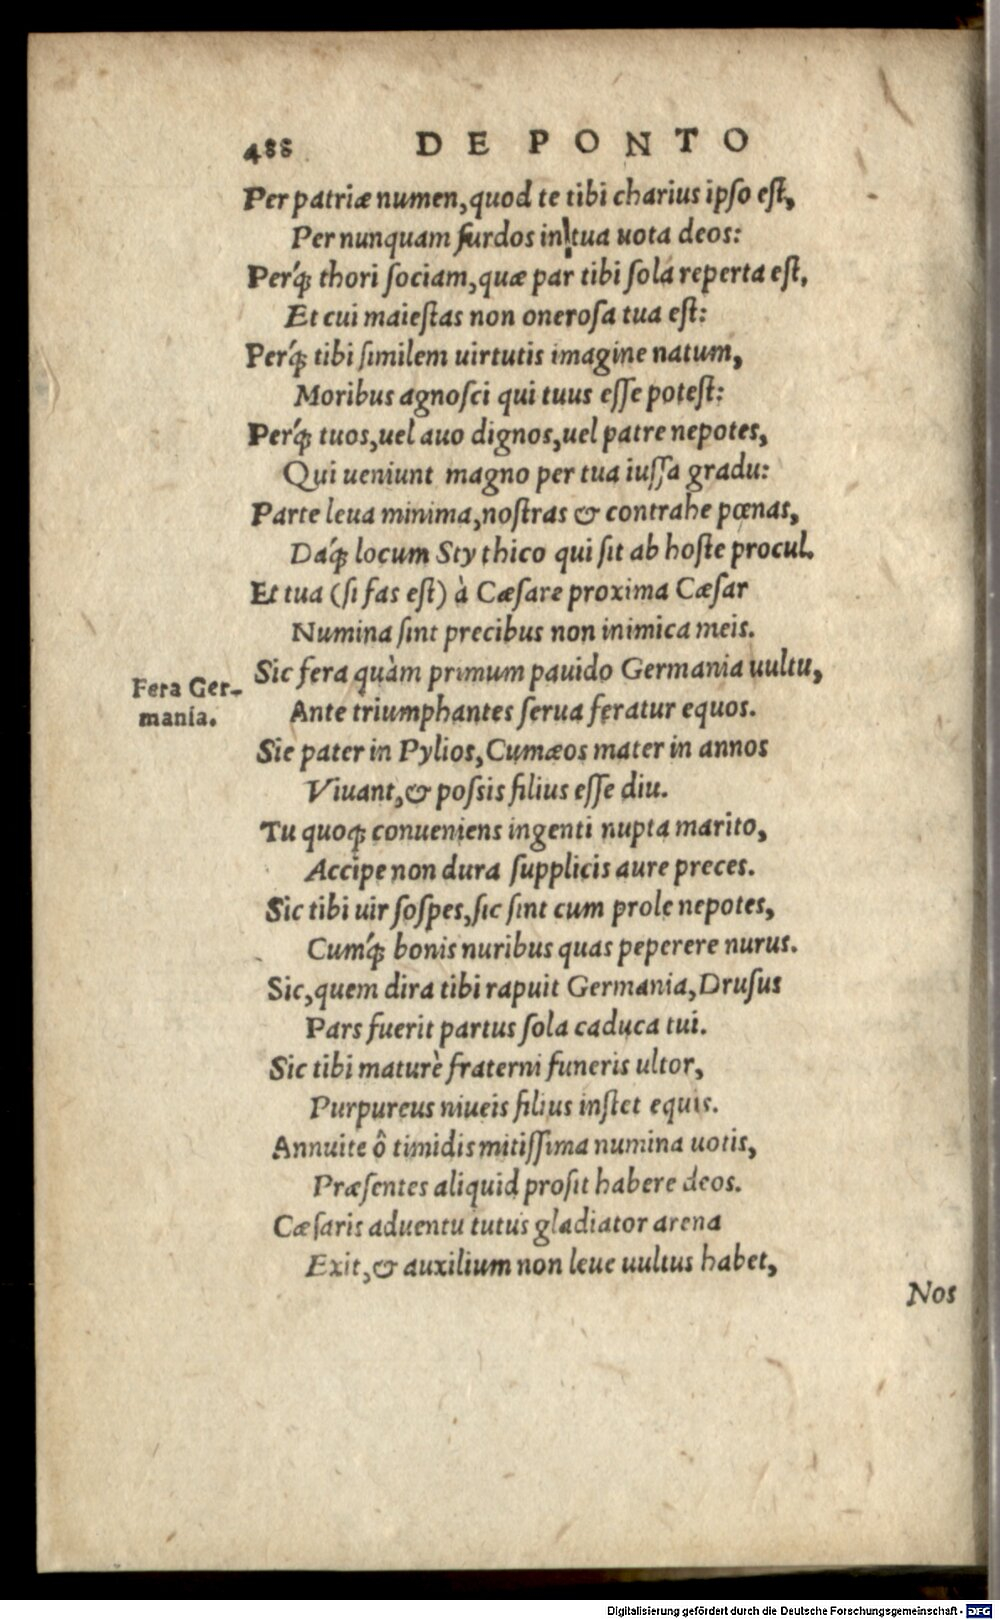 488 DE PONTO
Per patriæ numen, quod te tibi charius ipso eſt,
Per nunquam ſurdos in tua uota deos:
Perq́ꝫ thori ſociam, quæ par tibi ſola reperta eſt,
Et cui maieſtas non oneroſa tua eſt:
Perq́ꝫ tibi ſimilem uirtutis imagine natum,
Moribus agnoſci qui tuus eſſe poteſt:
Perq́ꝫ tuos, uel auo dignos, uel patre nepotes,
Qui ueniunt magno per tua iuſſa gradu:
Parte leua minima, noſtras & contrahe pœnas,
Daq́ꝫ locum Stythico qui ſit ab hoſte procul.
Et tua (ſi fas eſt) à Cæſare proxima Cæſar
Numina ſint precibus non inimica meis.
Sic fera quàm primum pauido Germania uultu,
Fera Ger-
mania.
Ante triumphantes ſerua feratur equos.
Sic pater in Pylios, Cumæos mater in annos
Viuant, & poſsis filius eſſe diu.
Tu quoqꝫ conueniens ingenti nupta marito,
Accipe non dura ſupplicis aure preces.
Sic tibi uir ſoſpes, ſic ſint cum prole nepotes,
Cumq́ꝫ bonis nuribus quas peperere nurus.
Sic, quem dira tibi rapuit Germania, Druſus
Pars fuerit partus ſola caduca tui.
Sic tibi maturè fraterni funeris ultor,
Purpureus niueis filius inſtet equis.
Annuite ô timidis mitiſſima numina uotis,
Præſentes aliquid proſit habere deos.
Cæſaris aduentu tutus gladiator arena
Exit, & auxilium non leue uultus habet,
Nos
Digitalisierung gefördert durch die Deutsche Forschungsgemeinschaft - DFG